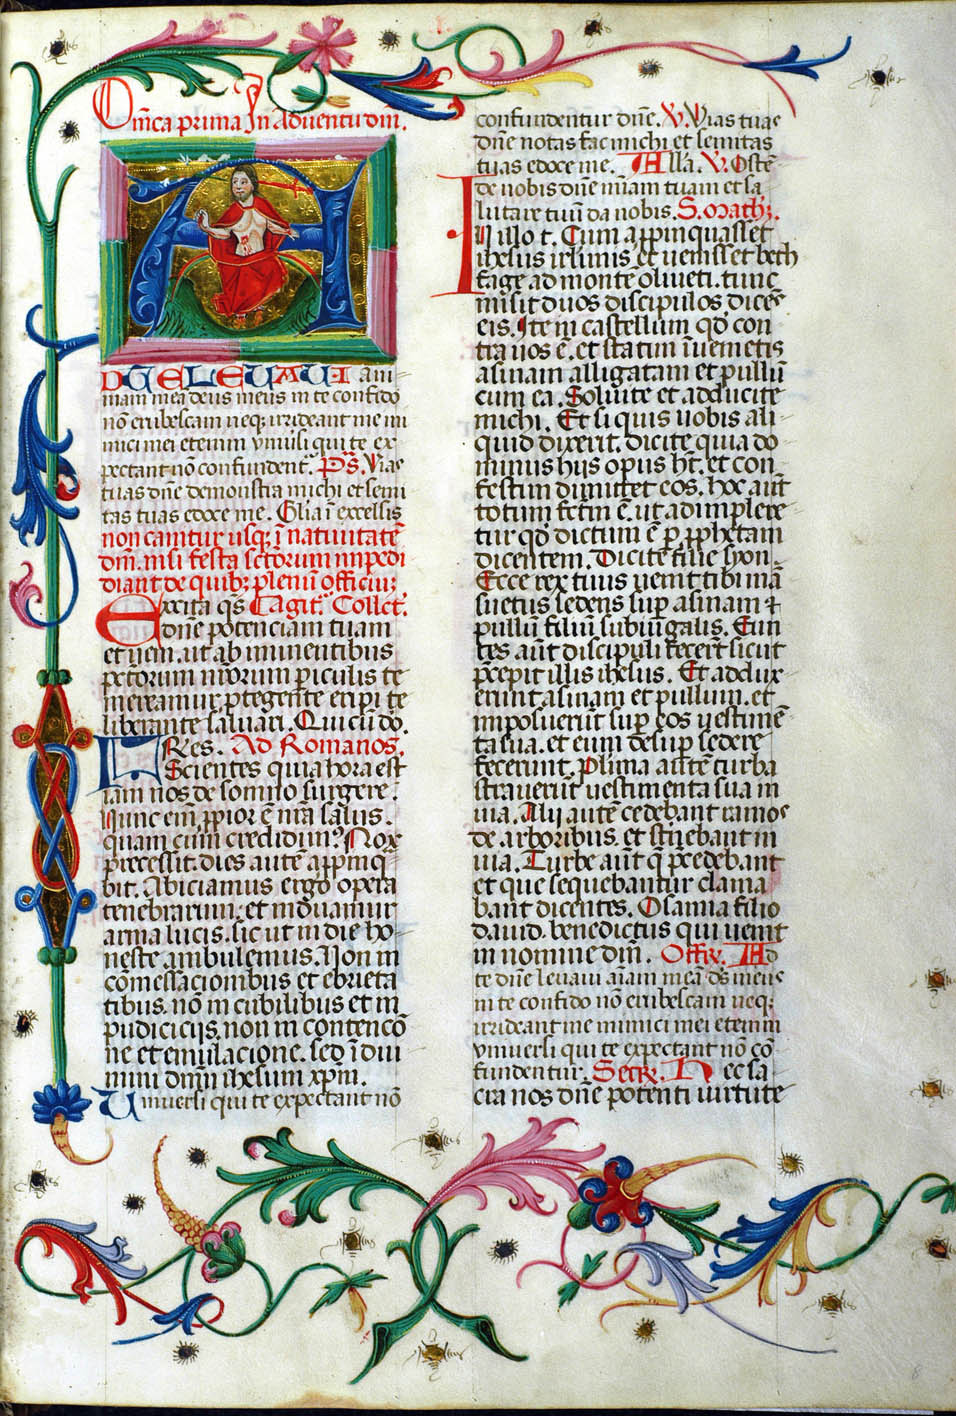 Dnica prima In Adventu dni.
AD TE LEVAVI ani
mam mea deus meus in te confido
nō erubescam neq; irrideant me ini
mici mei etenim vniūsi qui te ex
pectant nō confundent. Ps. Vias
tuas dne demonstra michi et semi
tas tuas edoce me. Glia ī excelsis
non cantur usq; ī natiuitatē
dni. nisi festa sctorum impedi
diant de quib; plenū officiū;
Excita qs Cagit. Collct.
dn̄e potenciam tuam
et ueni. ut ab iminentibus
pctorum nrōrum piculis te
mereamur. ptegente eripi te
liberante saluari. Qui cū do.
FRes. Ad Romanos.
Scientes quia hora est
iam nos de somno surgere.
Nunc eni ppior ē nrā salus.
quam cum credidim9. Nox
precessit. dies autē appinq
bit. Abiciamus ergo opera
tenebrarum. et induamur
arma lucis. sic ut in die ho
neste ambulemus. Non in
cōmessacionibus et ebrieta
tibus. nō in cubilibus et in
pudiciciis. non in contencō
ne et emulacione. sed ī dui
mini dnm ihesum xpm.
Vniuersi qui te expectant nō
confundentur dne. V. Vias tuas
dne notas fac michi et semitas
tuas edoce me. Alla. V. Oste
de nobis dne miam tuam et sa
lutare tuū da nobis. S. math;.
In illo t. Cum appinquasset
ihesus irlimis et uenisset beth
fage ad monte oliueti. tunc
misit duos discipulos dices
eis. Ite in castellum qd con
tra uos ē. et statim īuenietis
asinam alligatam et pullū
cum ea. Soluite et adducite
michi. Et si quis uobis ali
quid dixerit. dicite quia do
minus hiis opus ht. et con
festim dimittet eos. hoc aut
totum fctm ē. ut adimplere
tur qd dictum ē p pphetam
dicentem. Dicite filie syon
Ecce rex tuus uenit tibi mā
suetus sedens sup asinam et
pullū filiū subiugalis. Eun
tes aūt discipuli fecert sicut
pcepit illis ihesus. Et addux
erunt asinam et pullum. et
imposuerūt sup eos uestimē
ta sua. et eum desup sedere
fecerunt. Plima autē turba
strauerūt uestimenta sua in
uia. Alii autē cedebant ramos
de arboribus. et stnebant in
uia. Turbe aūt q pcedebant
et que sequebantur clama
bant dicentes. Osanna filio
dauid. benedictus qui uenit
in nomine dni. Offr. Ad
te dne leuaui aiam meā ds meus
in te confido nō erubescam neq;
irrideant me inimici mei etenim
vniuersi qui te expectant nō cō
fundentur. Secr. Hec sa
cra nos dne potenti uirtute